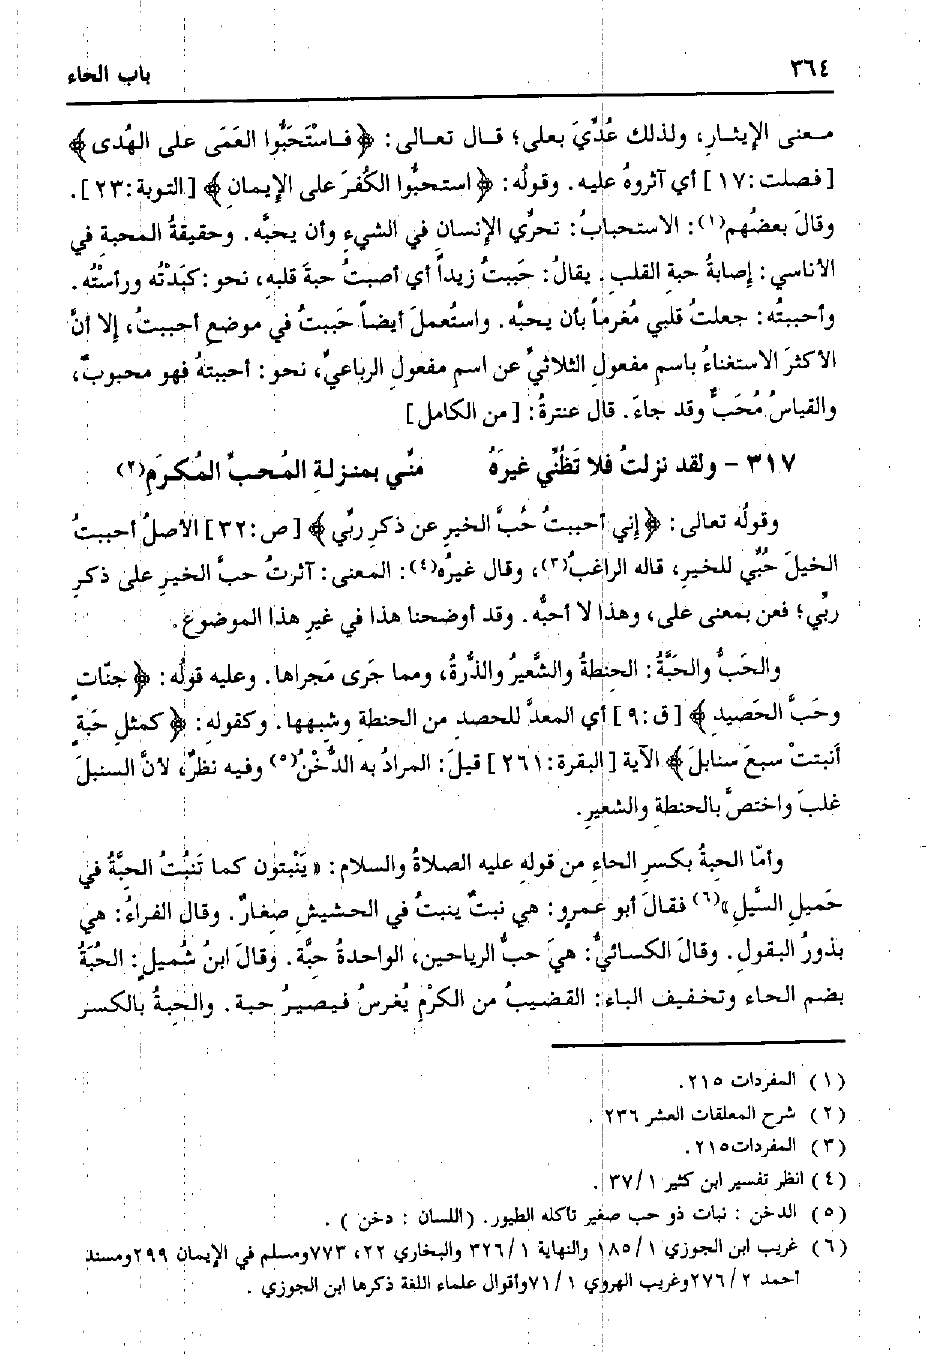 ٣٦٤
باب الحاء
معنى الإيثارِ، ولذلك عُدِّيَ بعلى؛ قال تعالى: ﴿فاسْتَحَبُّوا العَمَى على الهُدى﴾
[فصلت:١٧] أي آثروهُ عليه. وقولُه: ﴿استحبُّوا الكُفرَ على الإيمانِ﴾ [التوبة:٢٣].
وقالَ بعضُهم(١): الاستحبابُ: تحرِّي الإنسانِ في الشيءِ وأن يحبَّه. وحقيقةُ المحبةِ في
الأناسي: إصابةُ حبةِ القلبِ. يقالُ: حَببتُ زيداً أي أصبتُ حبةَ قلبهِ، نحو: كبَدْتُه ورأسْتُه.
وأحببتُه: جعلتُ قلبي مُغرماً بأن يحبَّه. واستُعملَ أيضاً حَببتُ في موضعِ أحببتُ، إلا أنَّ
الأكثرَ الاستغناءُ باسم مفعولِ الثلاثيِّ عن اسمِ مفعولِ الرباعيِّ، نحو: أحببتهُ فهو محبوبٌ،
والقياسُ مُحَبٌّ وقد جاءَ. قال عنترةُ: [من الكامل]
٣١٧ - ولقد نزلتُ فلا تَظُنِّي غيرَهُ منِّي بمنزلةِ المُحبِّ المُكرَمِ(٢)
وقولُه تعالى: ﴿إني أحببتُ حُبَّ الخيرِ عن ذكرِ ربِّي﴾ [ص:٣٢] الأصلُ أحببتُ
الخيلَ حُبِّي للخيرِ، قاله الراغبُ(٣)، وقال غيرُه(٤): المعنى: آثرتُ حبَّ الخيرِ على ذكرِ
ربِّي؛ فعن بمعنى على، وهذا لا أحبُّه. وقد أوضحنا هذا في غيرِ هذا الموضوع.
والحَبُّ والحَبَّةُ: الحِنطةُ والشَّعيرُ والذُّرةُ، ومما جَرى مَجراها. وعليه قولُه: ﴿جنّاتٍ
وحَبَّ الحَصيدِ﴾ [ق:٩] أي المعدَّ للحصدِ من الحنطةِ وشِبهِها. وكقولهِ: ﴿كمثلِ حَبةٍ
أنبتتْ سبعَ سنابلَ﴾ الآية [البقرة:٢٦١] قيلَ: المرادُ به الدُّخْنُ(٥) وفيه نظرٌ، لأنَّ السنبلَ
غلبَ واختصَّ بالحنطةِ والشعيرِ.
وأمّا الحِبةُ بكسرِ الحاءِ من قولِه عليه الصلاةُ والسلام: «يَنْبتون كما تَنبُتُ الحِبَّةُ في
حَميلِ السَّيلِ»(٦) فقالَ أبو عمرٍو: هي نبتٌ ينبتُ في الحشيشِ صِغارٌ. وقال الفراءُ: هي
بذورُ البقولِ. وقالَ الكسائيُّ: هيَ حبُّ الرياحينِ، الواحدةُ حِبَّة. وقالَ ابنُ شُميلٍ: الحُبَةُ
بضم الحاء وتخفيف الباء: القضيبُ من الكرْمِ يُغرسُ فيصيرُ حبة. والحِبةُ بالكسر
(١) المفردات ٢١٥.
(٢) شرح المعلقات العشر ٢٣٦.
(٣) المفردات ٢١٥.
(٤) انظر تفسير ابن كثير ١/ ٣٧.
(٥) الدخن: نبات ذو حب صغير تأكله الطيور. (اللسان: دخن).
(٦) غريب ابن الجوزي ١/ ١٨٥ والنهاية ١/ ٣٢٦ والبخاري ٢٢، ٧٧٣ومسلم في الإيمان ٢٩٩ومسند
أحمد ٢/ ٢٧٦وغريب الهروي ١/ ٧١وأقوال علماء اللغة ذكرها ابن الجوزي.